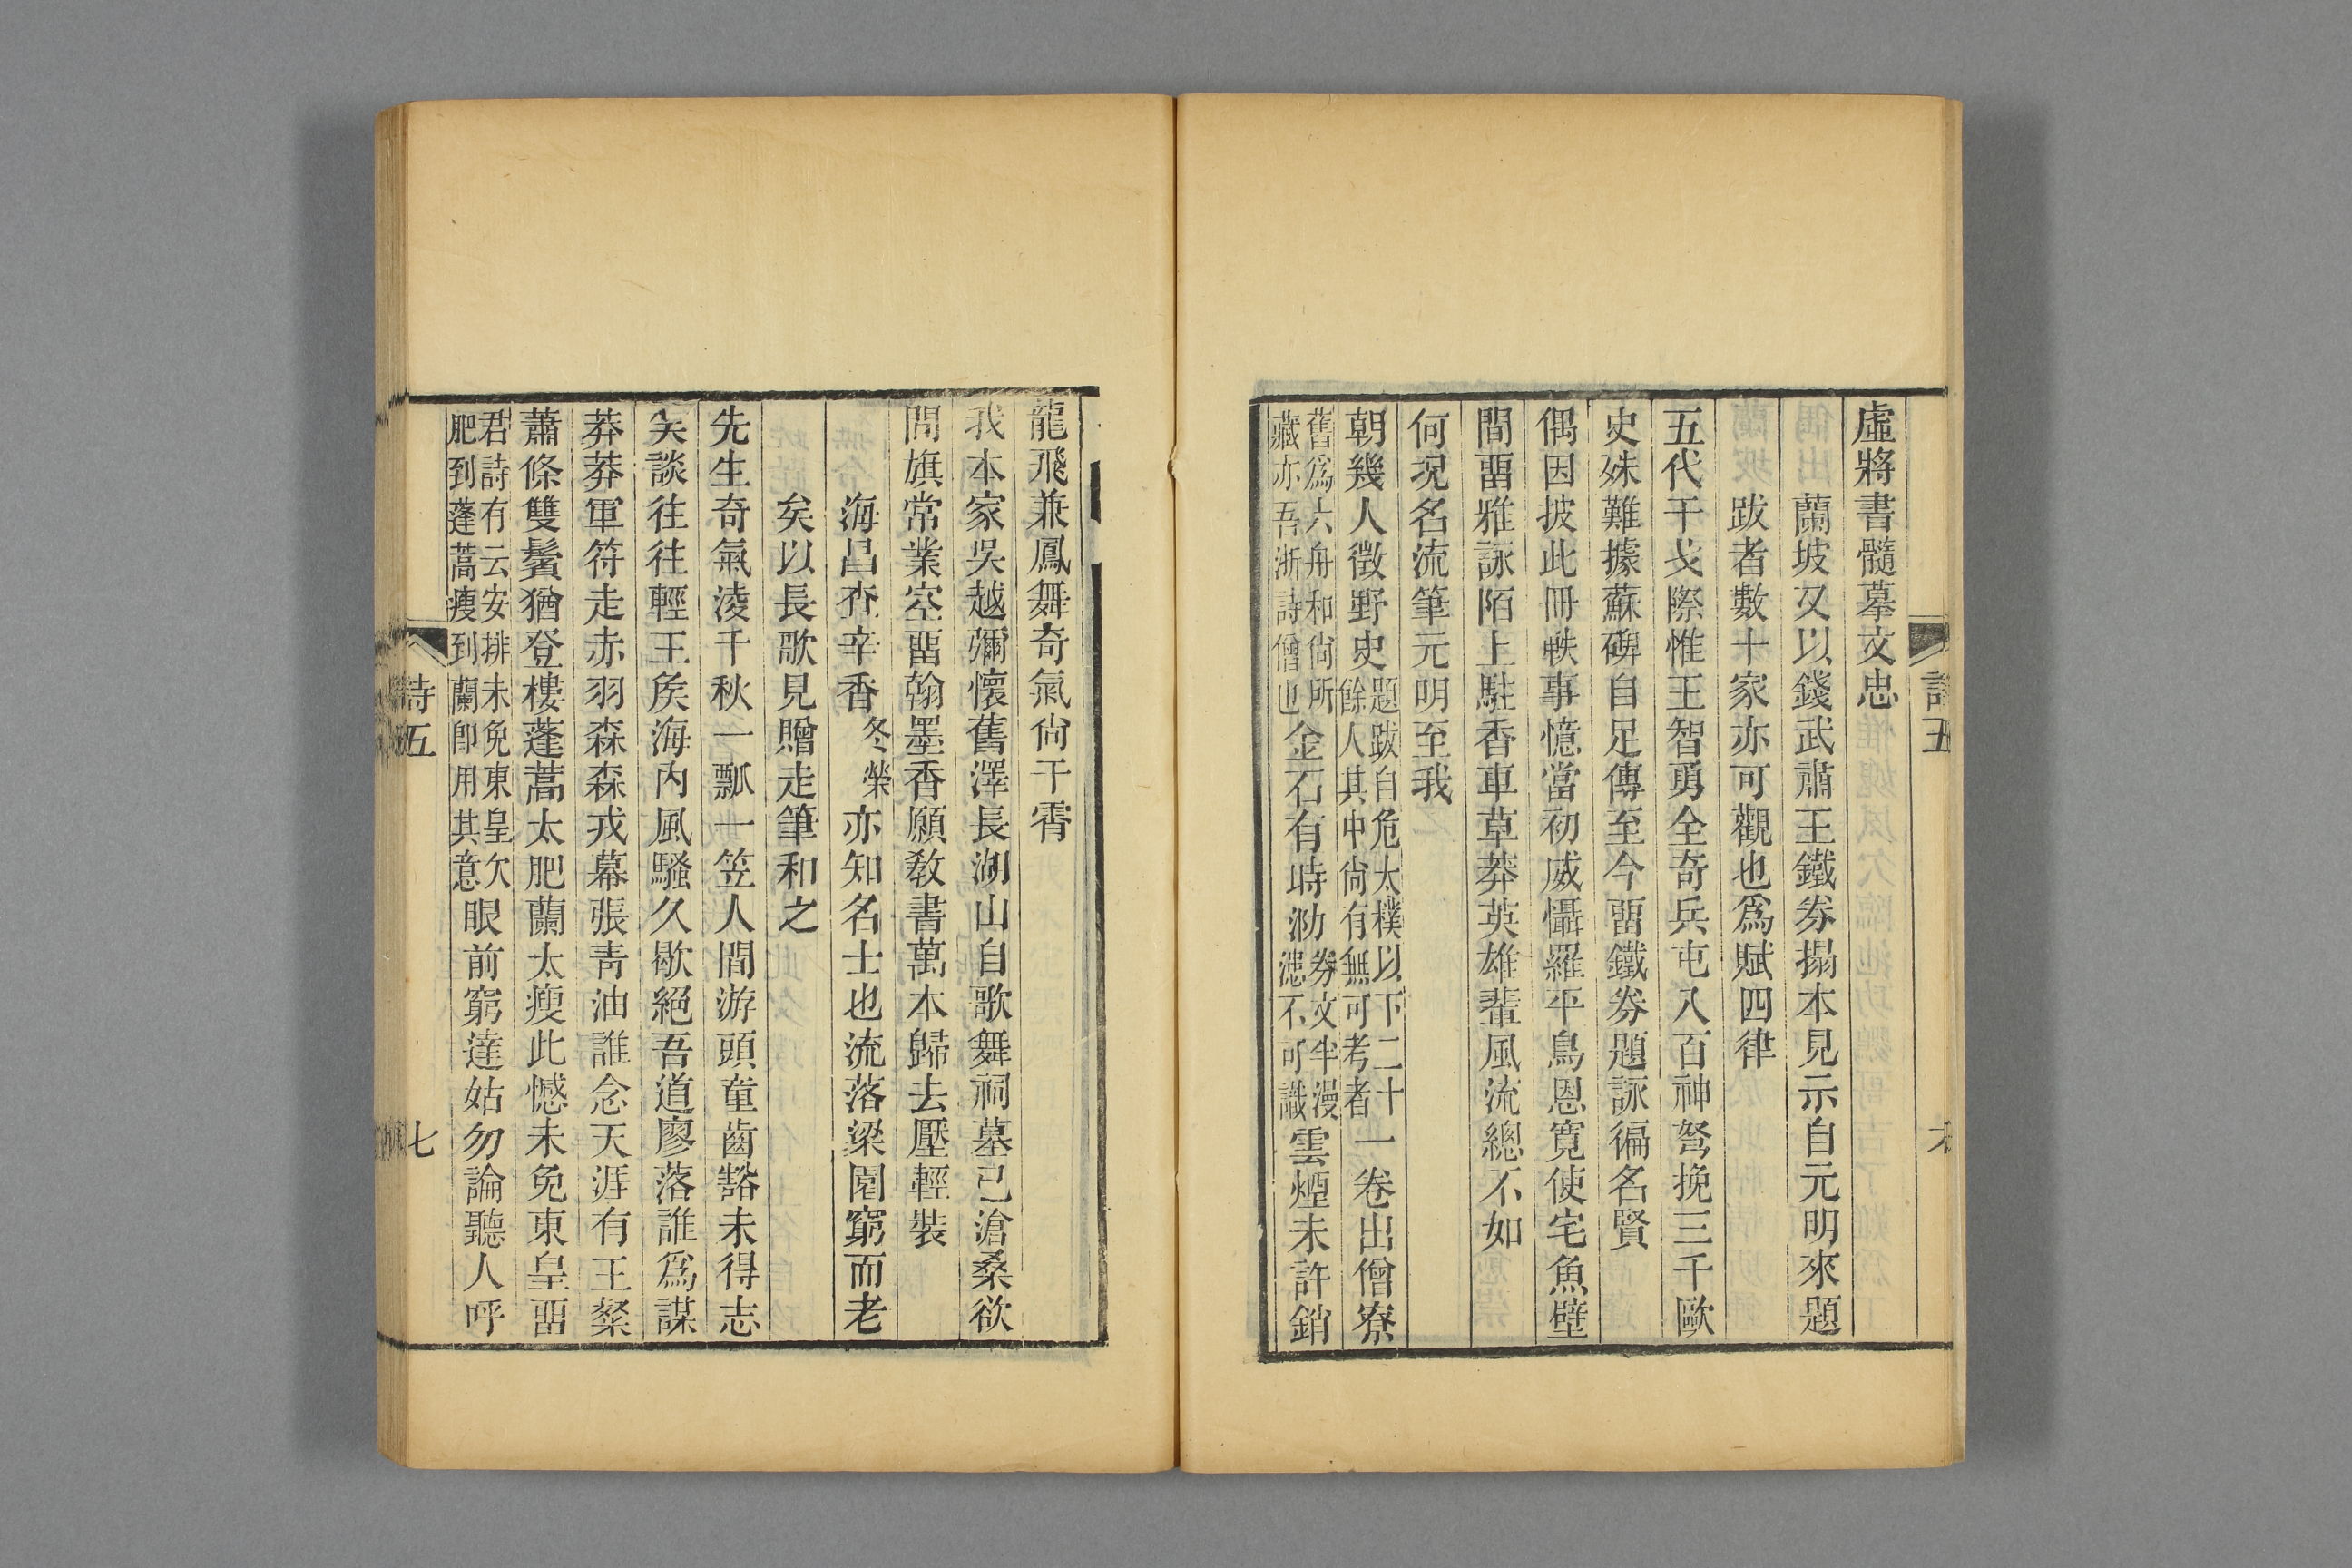 虛將書髓摹文忠
蘭坡又以錢武肅王鐵券搨本見示自元明來題
跋者數十家亦可觀也爲賦四律
五代干戈際惟王智勇全奇兵屯八百神弩挽三千歐
史殊難據蘇碑自足傳至今畱鐵券題詠徧名賢
偶因披此冊軼事憶當初威懾羅平鳥恩寛使宅魚壁
間畱雅詠陌上駐香車草莽英雄輩風流總不如
何況名流筆元明至我
朝幾人徵野史題跋自危太樸以下二十餘人其中尙有無可考者一卷出僧寮
舊爲六舟和尙所藏亦吾浙詩僧也金石有時泐券文半漫漶不可識雲煙未許銷
龍飛兼鳳舞奇氣尙干霄
我本家吳越彌懷舊澤長湖山自歌舞祠墓已滄桑欲
問旂常業空畱翰墨香願敎書萬本歸去壓輕裝
海昌查辛香冬榮亦知名士也流落梁園窮而老
矣以長歌見贈走筆和之
先生奇氣淩千秋一瓢一笠人間游頭童齒豁未得志
矢談往往輕王矦海內風騷久歇絕吾道廖落誰爲謀
莽莽軍符走赤羽森森戎幕張靑油誰念天涯有王粲
蕭條雙鬢猶登樓蓬蒿太肥蘭太瘦此憾未免東皇畱
君詩有云安排未免東皇欠肥到蓬蒿瘦到蘭卽用其意眼前窮達姑勿論聽人呼
詩五
七